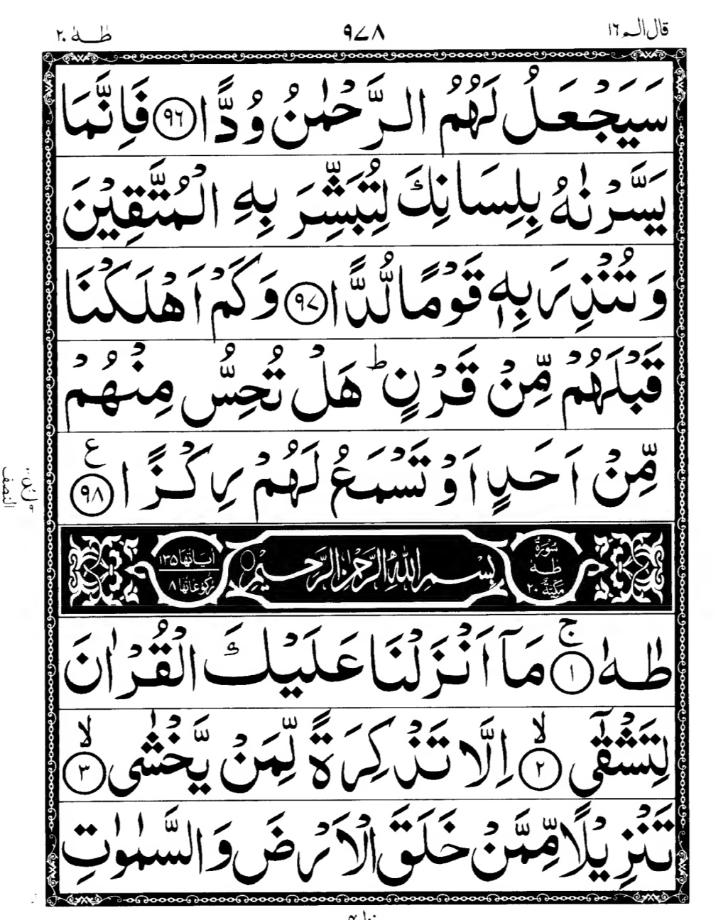 قال الم ١٦ ٩٧٨ طٰهٰ ٢٠
سَيَجْعَلُ لَهُمُ الرَّحْمٰنُ وُدًّا ﴿٩٦﴾ فَاِنَّمَا
يَسَّرْنٰهُ بِلِسَانِكَ لِتُبَشِّرَ بِهِ الْمُتَّقِيْنَ
وَتُنْذِرَ بِهٖ قَوْمًا لُّدًّا ﴿٩٧﴾ وَكَمْ اَهْلَكْنَا
قَبْلَهُمْ مِّنْ قَرْنٍ ؕ هَلْ تُحِسُّ مِنْهُمْ
مِّنْ اَحَدٍ اَوْ تَسْمَعُ لَهُمْ رِكْزًا ﴿٩٨﴾ ع
النصف
سُوْرَةُ طٰهٰ مَكِّيَّةٌ ٢٠ بِسْمِ اللهِ الرَّحْمٰنِ الرَّحِيْمِ اٰيَاتُهَا ١٣٥ رُكُوْعَاتُهَا ٨
طٰهٰ ﴿١﴾ ۚ مَاۤ اَنْزَلْنَا عَلَيْكَ الْقُرْاٰنَ
لِتَشْقٰٓى ﴿٢﴾ ۙ اِلَّا تَذْكِرَةً لِّمَنْ يَّخْشٰى ﴿٣﴾ ۙ
تَنْزِيْلًا مِّمَّنْ خَلَقَ الْاَرْضَ وَالسَّمٰوٰتِ